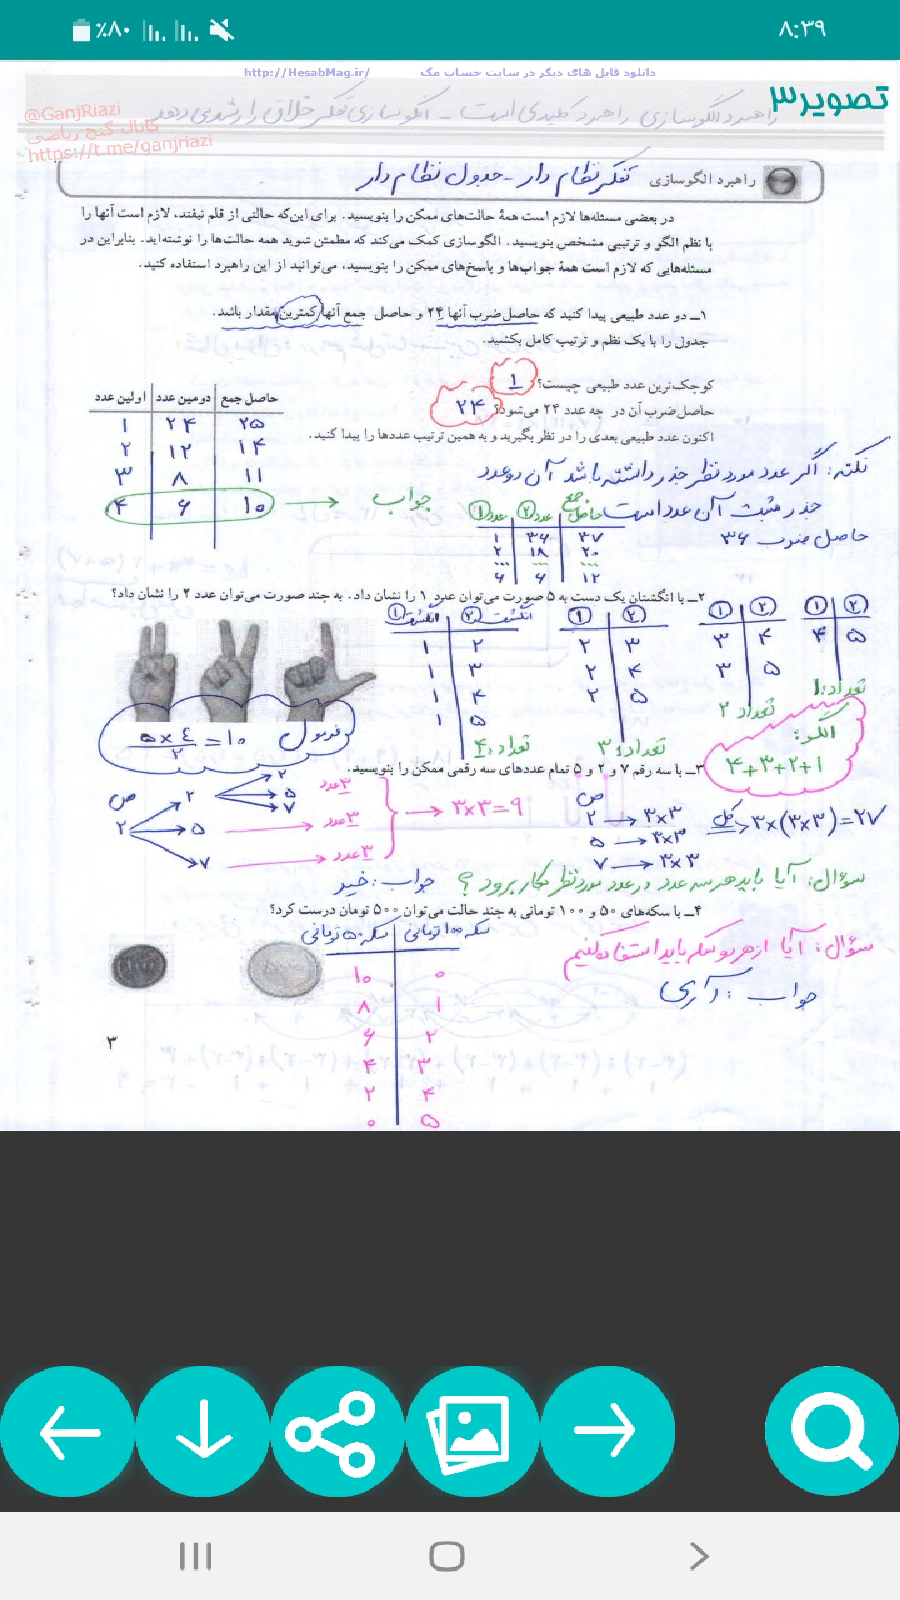 ٪۸۰
۸:۳۹
http://HesabMag.ir/ دانلود فایل های دیگر در سایت حساب مگ
تصویر۳
راهبرد الگوسازی راهبرد کلیدی است - الگوسازی تفکر خلاق را رشد می دهد
@GanjRiazi
کانال گنج ریاضی
https://t.me/ganjriazi
راهبرد الگوسازی تفکر نظام دار - جدول نظام دار
در بعضی مسئله‌ها لازم است همهٔ حالت‌های ممکن را بنویسید. برای این‌که حالتی از قلم نیفتد، لازم است آنها را
با نظم الگو و ترتیبی مشخص بنویسید. الگوسازی کمک می‌کند که مطمئن شوید همه حالت‌ها را نوشته‌اید. بنابراین در
مسئله‌هایی که لازم است همهٔ جواب‌ها و پاسخ‌های ممکن را بنویسید، می‌توانید از این راهبرد استفاده کنید.
۱ـ دو عدد طبیعی پیدا کنید که حاصل‌ضرب آنها ۲۴ و حاصل جمع آنها کمترین مقدار باشد.
جدول را با یک نظم و ترتیب کامل بکشید.
کوچک‌ترین عدد طبیعی چیست؟ ۱
حاصل‌ضرب آن در چه عدد ۲۴ می‌شود؟ ۲۴
اکنون عدد طبیعی بعدی را در نظر بگیرید و به همین ترتیب عددها را پیدا کنید.
اولین عدد دومین عدد حاصل جمع
۱ ۲۴ ۲۵
۲ ۱۲ ۱۴
۳ ۸ ۱۱
۴ ۶ ۱۰
جواب
نکته: اگر عدد مورد نظر جذر داشته باشد آن دو عدد
جذر مثبت آن عدد است
حاصل ضرب ۳۶
عدد۱ عدد۲ حاصل جمع
۱ ۳۶ ۳۷
۲ ۱۸ ۲۰
... ... ...
۶ ۶ ۱۲
۲ـ با انگشتان یک دست به ۵ صورت می‌توان عدد ۱ را نشان داد. به چند صورت می‌توان عدد ۲ را نشان داد؟
انگشت۱ انگشت۲
۱ ۲
۱ ۳
۱ ۴
۱ ۵
تعداد: ۴
۱ ۲
۲ ۳
۲ ۴
۲ ۵
تعداد: ۳
۱ ۲
۳ ۴
۳ ۵
تعداد ۲
۱ ۲
۴ ۵
تعداد: ۱
الگو:
۴+۳+۲+۱
فرمول ۵×٤/۲ = ۱۰
۳ـ با سه رقم ۷ و ۲ و ۵ تمام عددهای سه رقمی ممکن را بنویسید.
ص
۲
۲ ۵ ۷
۲ ۵ ۷
۳ عدد
۳ عدد
۳ عدد
۳×۳=۹
ص
۲ → ۳×۳
۵ → ۳×۳
۷ → ۳×۳
کل ۳×(۳×۳)=۲۷
سؤال: آیا باید هر سه عدد در عدد مورد نظر بکار برود؟ جواب: خیر
۴ـ با سکه‌های ۵۰ و ۱۰۰ تومانی به چند حالت می‌توان ۵۰۰ تومان درست کرد؟
سکه ۵۰ تومانی سکه ۱۰۰ تومانی
۱۰ ۰
۸ ۱
۶ ۲
۴ ۳
۲ ۴
۰ ۵
سؤال: آیا از هر دو سکه باید استفاده کنیم
جواب: آری
۳